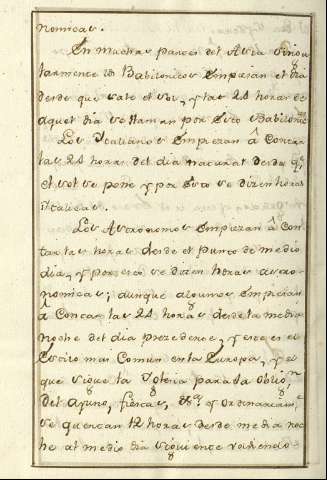 nomicas.
En muchas partes del Asia singu
larmente los Babilonicos Empiesan el dia
desde que sale el sol, y las 24 horas de
aquel dia se llaman por esto Babilonic.s
Los Ytalianos Empiezan â Contar
las 24 horas del dia natural desde q.e
el sol se pone y por esto se dizen horas
italicas.
Los Astronomos Empiezan â Con
tar las horas desde el punto de medio
dia, y por eso se dizen horas astro-
nomicas; aunque algunos Empiezan
â Contar las 24 horas desde la media
noche del dia prezedente, y este es el
Estilo mas Comun en la Europa, y el
que sigue la Yglesia para la oblig.n
del Ayuno, fiestas, &.a y Ordinariam.te
se quentan 12 horas desde media no
che al medio dia siguiente volviendo